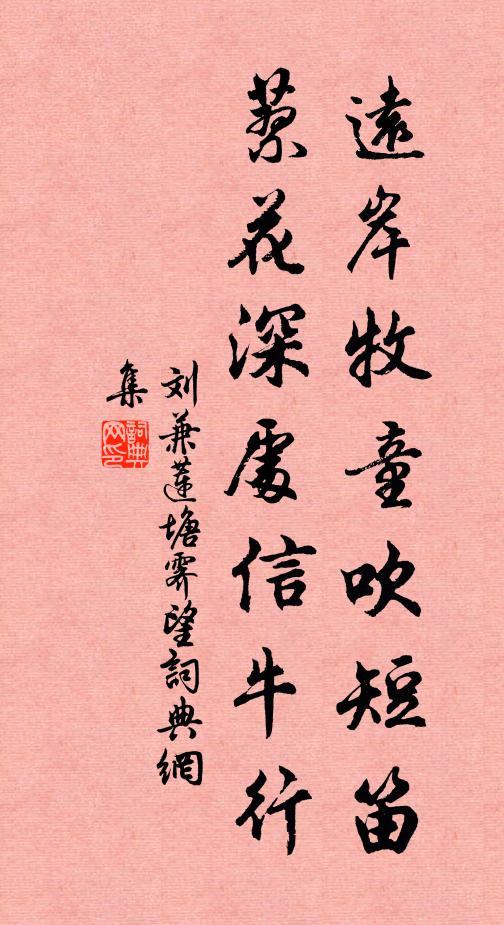 遠岸牧童吹短笛
蓼花深處信牛行
刘兼蓮塘霽望詞典網
集
詞典
网印